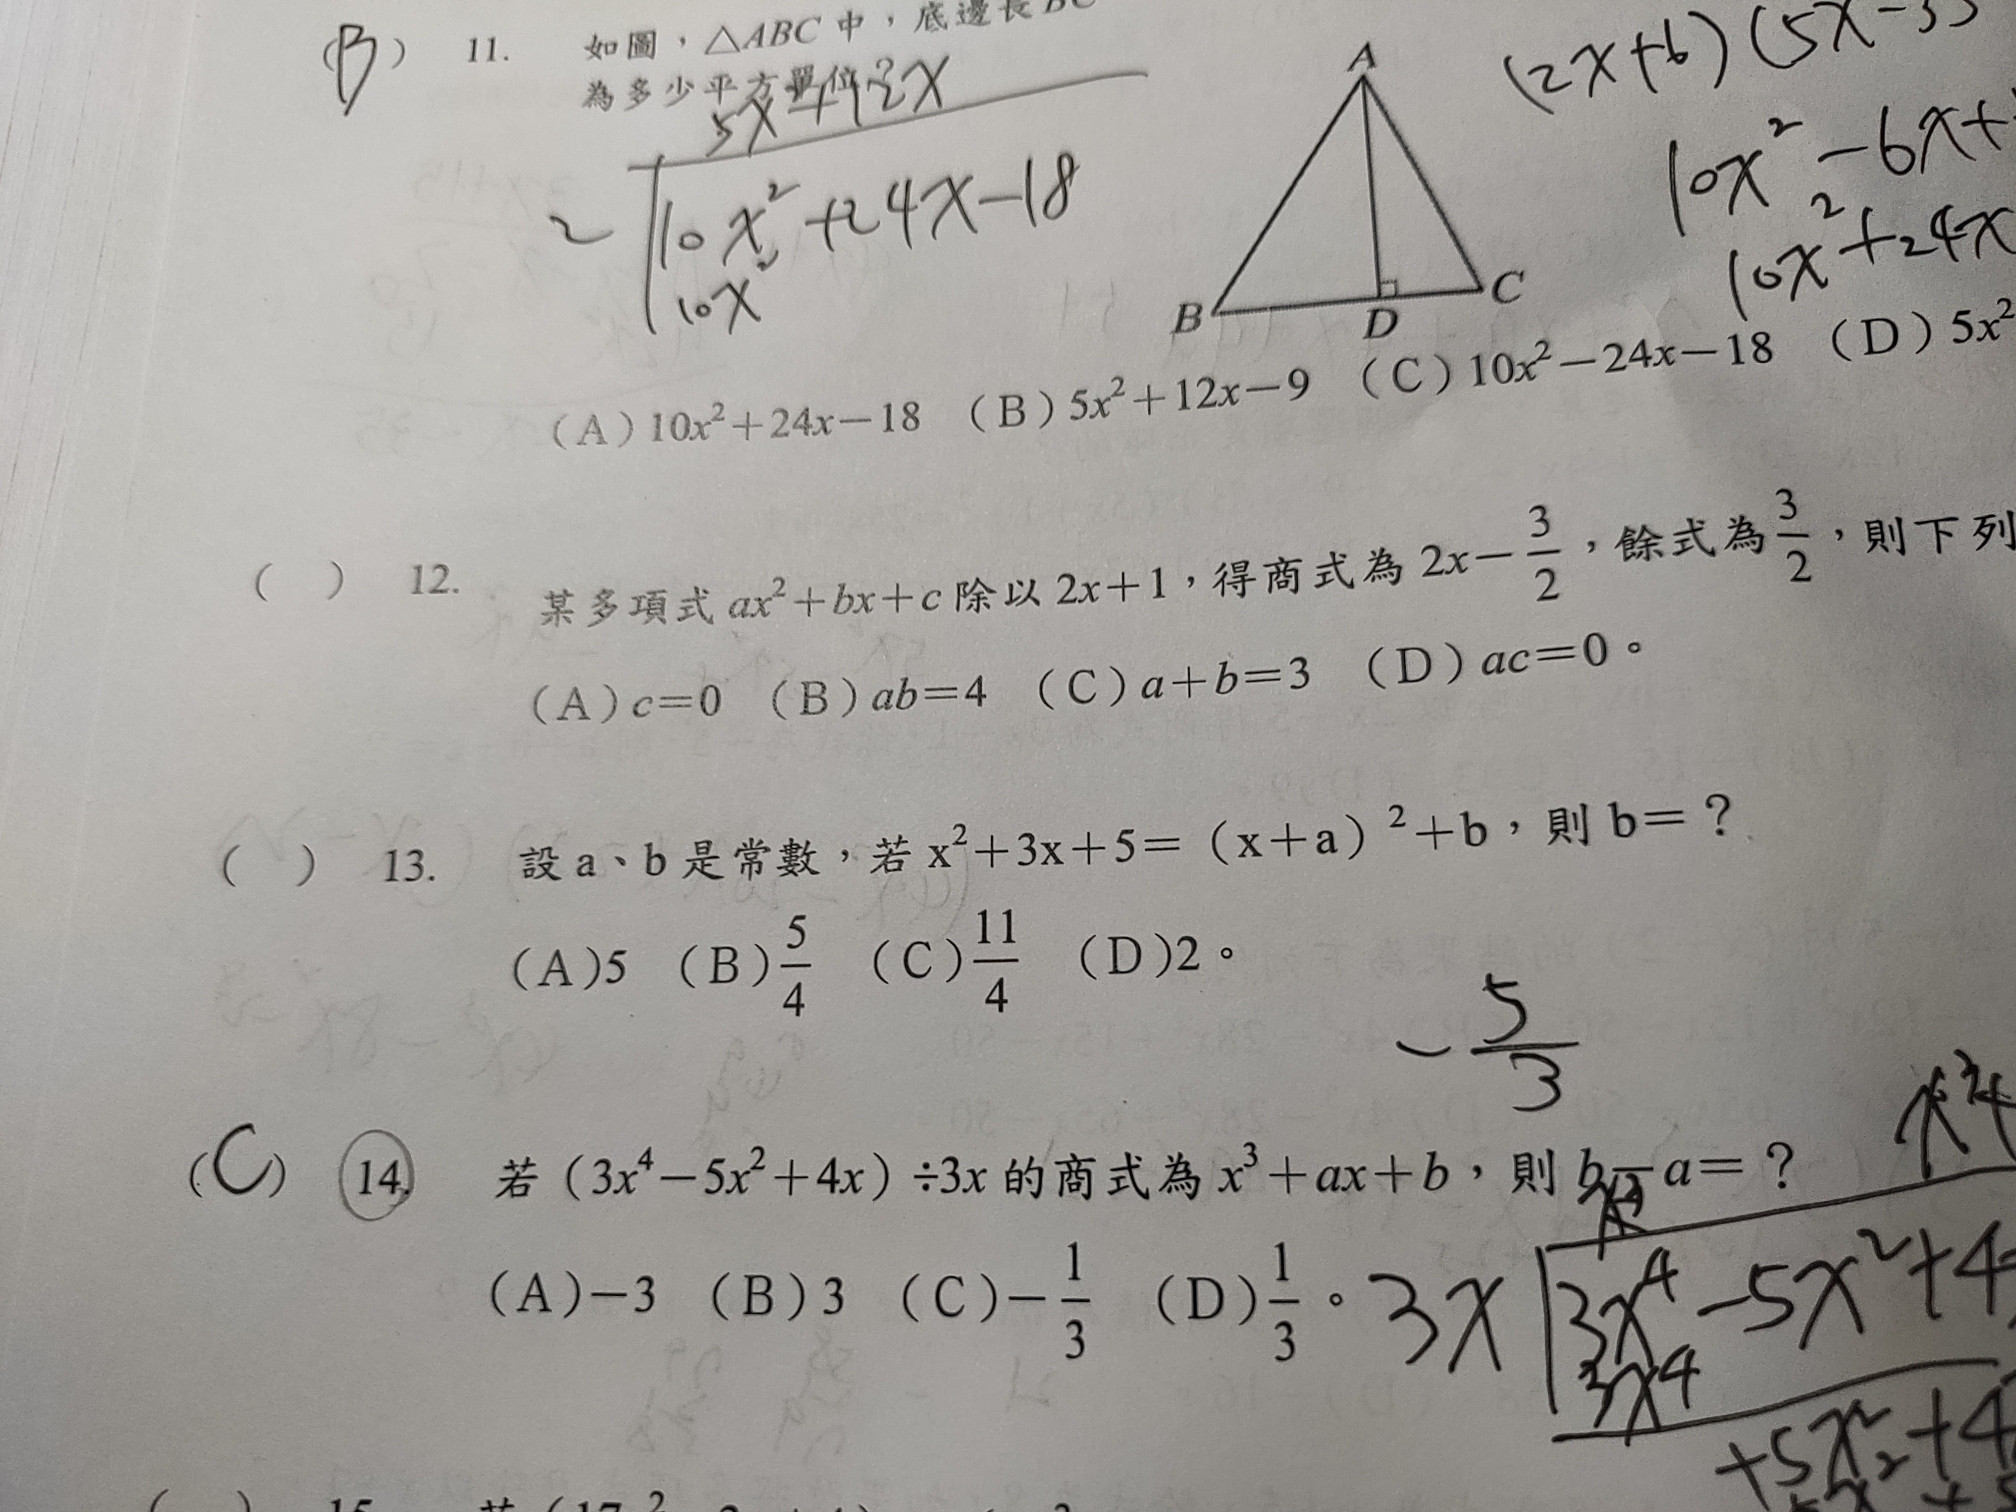 (B) 11. 如圖，△ABC 中，底邊長 BC
為多少平方單位？
5x+12x
2 10x²+24x-18
10x²
A
B
D
C
(2x+6)(5x-3)
10x²-6x+
10x²+24x
(A)10x²+24x-18 (B)5x²+12x-9 (C)10x²-24x-18 (D)5x²
( ) 12. 某多項式 ax²+bx+c 除以 2x+1，得商式為 2x-3/2，餘式為 3/2，則下列
(A)c=0 (B)ab=4 (C)a+b=3 (D)ac=0。
( ) 13. 設 a、b 是常數，若 x²+3x+5=(x+a)²+b，則 b=？
(A)5 (B)5/4 (C)11/4 (D)2。
-5/3
(C) 14. 若(3x⁴-5x²+4x)÷3x 的商式為 x³+ax+b，則 b-a=？
(A)-3 (B)3 (C)-1/3 (D)1/3。
3x 3x⁴-5x²+4
3x⁴
+5x²+4